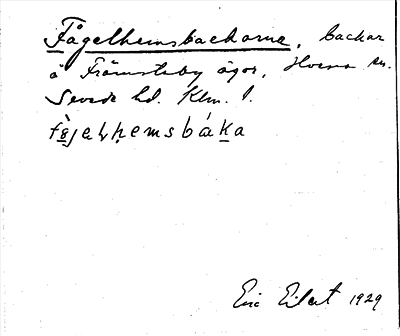 Fågelhemsbackarna, backar
å Främsteby ägor, Hvena sn.
Sevede hd. Klm. l.
fågelhemsbáka
Eric Eilert 1929